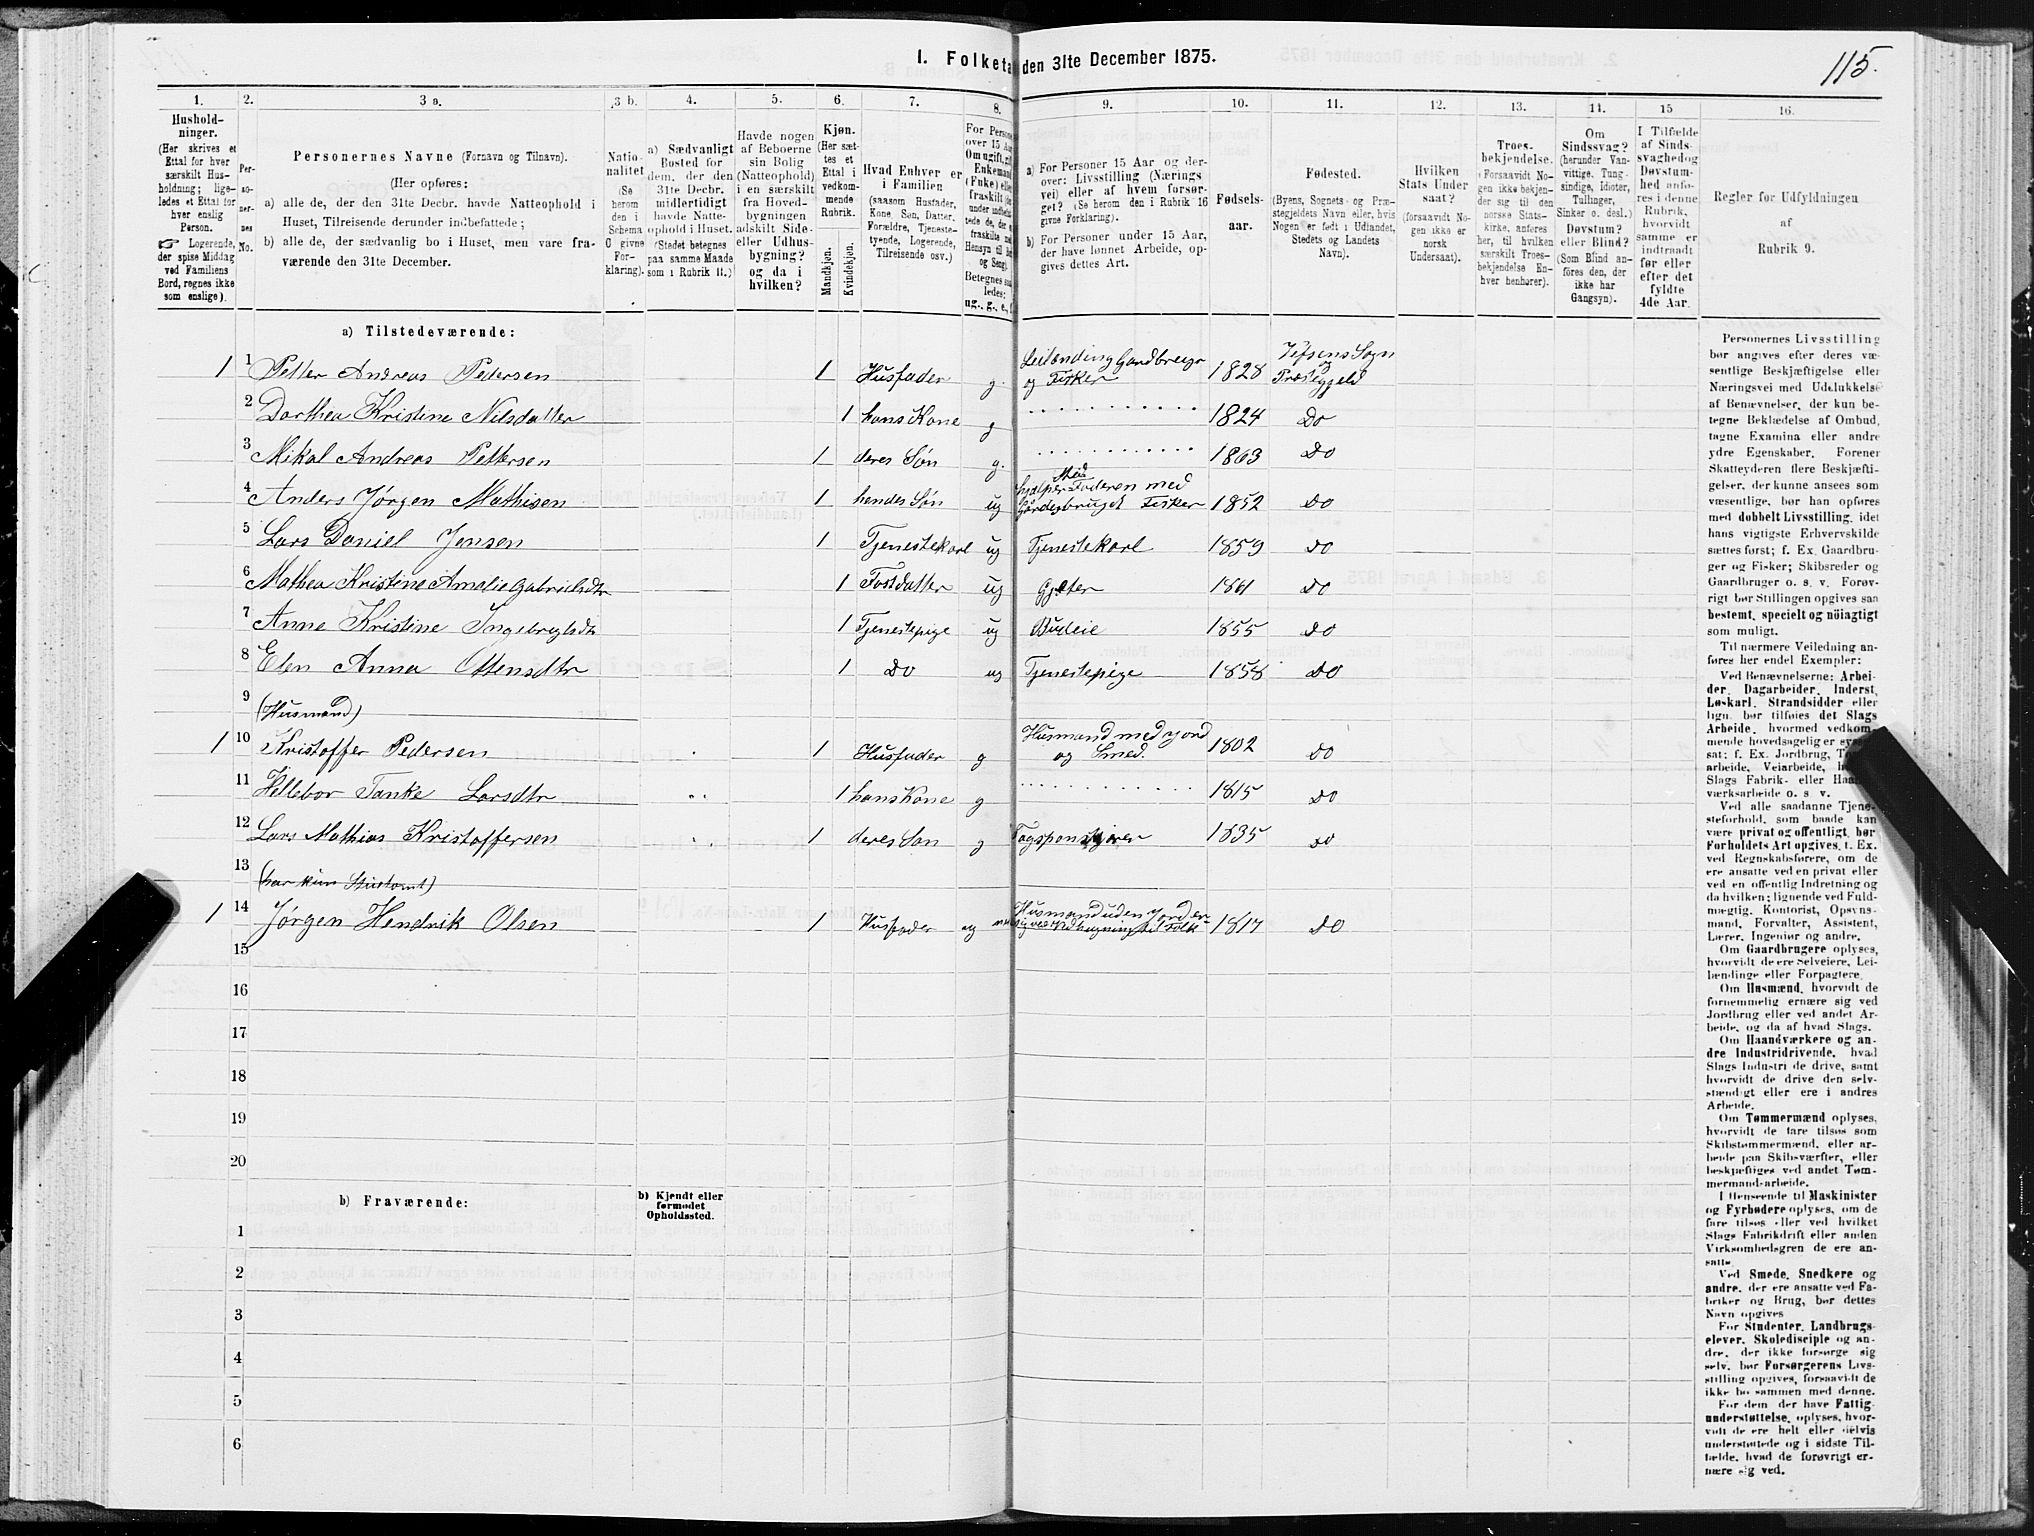 I. Folketæ den 31te December 1875.
115.
1. 2. 3 a. 3 b. 4. 5. 6. 7. 8. 9. 10. 11. 12. 13. 14. 15 16.
Hushold-
ninger.
(Her skrives et
Ettal for hver
særskilt Hus-
holdning; lige-
ledes et Ettal for
hver enslig
Person.
☞ Logerende,
der spise Middag
ved Familiens
Bord, regnes ikke
som enslige).
Per-
so-
ner-
nes
No.
Personernes Navne (Fornavn og Tilnavn).
(Her opføres:
a) alle de, der den 31te Decbr. havde Natteophold i
Huset, Tilreisende derunder indbefattede;
b) alle de, der sædvanlig bo i Huset, men vare fra-
værende den 31te December.
Natio-
nalitet
(Se
herom
den i
Schema
O givne
For-
klaring).
a) Sædvanligt
Bosted for
dem, der den
31te Decbr.
midlertidigt
havde Natte-
ophold i Huset.
(Stedet betegnes
paa samme Maade
som i Rubrik 11.)
Havde nogen
af Beboerne
sin Bolig
(Natteophold)
i en særskilt
fra Hoved-
bygningen
adskilt Side-
eller Udhus-
bygning?
og da i
hvilken?
Kjøn.
(Her sæt-
tes et
Ettal i
vedkom-
mende
Rubrik.
Mandkjøn.
Kvindekjøn.
Hvad Enhver er
i Familien
(saasom Husfader,
Kone, Søn, Datter,
Forældre, Tjeneste-
tyende, Logerende,
Tilreisende osv.)
For Persone
over 15 Aar
Om ugift, gift
Enkemand
(Enke) eller
fraskilt
Betegnes saa-
ledes:
ug., g., e., f
a) For Personer 15 Aar og der-
over: Livsstilling (Nærings
vei) eller af hvem forsør-
get? (Se herom den i Rubrik 16
givne Forklaring).
b) For Personer under 15 Aar,
der have lønnet Arbeide, op-
gives dettes Art.
Fødsels-
aar.
Fødested.
(Byens, Sognets og Præ-
stegjeldets Navn eller, hvis
Nogen er født i Udlandet,
Stedets og Landets
Navn).
Hvilken
Stats Under
saat?
(forsaavidt No-
gen ikke er
norsk
Undersaat).
Troes-
bekjendelse.
(Forsaavidt No-
gen ikke bekjen-
der sig til den
norske Stats-
kirke, anføres
her, til hvilken
særskilt Troes-
bekjendelse En-
hver henhører).
Om
Sindssvag?
(herunder Van-
vittige, Tung-
sindige, Idioter,
Tullinger,
Sinker o. desl.)
Døvstum?
eller Blind?
(Som Blind an-
føres den, der
ikke har
Gangsyn).
I Tilfælde
af Sinds-
svaghed og
Døvstum-
hed anfø-
res i denne
Rubrik,
hvorvidt
samme er
indtraadt
før eller
efter det
fyldte
4de Aar.
Regler for Udfyldningen
af
Rubrik 9.
a) Tilstedeværende:
1 1 Petter Andreas Pedersen 1 Husfader g. Leilænding Gaardbruger og Fisker 1828 Vefsens Sogn og Præstegjeld
2 Dorthea Kristine Nilsdatter 1 hans Kone g 1824 Do
3 Mikal Andreas Pettersen 1 deres Søn g. 1863 Do
4 Anders Jørgen Mathisen 1 hendes Søn ug hjælper Faderen med Gårdsbruget Fisker 1852 Do
5 Lars Daniel Jensen 1 Tjenestekarl ug Tjenestekarl 1859 Do
6 Mathea Kristine Amalie Gabrielsdtr 1 Fostdatter ug Gjeter 1861 Do
7 Anne Kristine Ingebrigtsdtr 1 Tjenestepige ug Budeie 1855 Do
8 Elen Anna Ottensdtr 1 Do ug Tjenestepige 1858 Do
9 (Husmand)
1 10 Kristoffer Pedersen 1 Husfader g Husmand med jord og Smed. 1802 Do
11 Hellebor Tanke Larsdtr 1 hans Kone g 1815 Do
12 Lars Mathias Kristoffersen 1 deres Søn g 1835 Do
13 (har kun)
1 14 Jørgen Hendrik Olsen 1 Husfader ug Husmand uden Jord 1817 Do
15
16
17
18
19
20
b) Fraværende:
b) Kjendt eller
formodet
Opholdssted.
1
2
3
4
5
6
Personernes Livsstilling
bør angives efter deres væ-
sentlige Beskjæftigelse eller
Næringsvei med Udelukkelse
af Benævnelser, der kun be-
tegne Beklædelse af Ombud,
tagne Examina eller andre
ydre Egenskaber. Forener
Skatteyderen flere Beskjæfti-
gelser, der kunne ansees som
væsentlige, bør han opføres
med dobbelt Livsstilling, idet
hans vigtigste Erhvervskilde
sættes først; f. Ex. Gaardbru-
ger og Fisker; Skibsreder og
Gaardbruger o. s. v. Forøv-
rigt bør Stillingen opgives saa
bestemt, specielt og nöiagtigt
som muligt.
Til nærmere Veiledning an-
føres her endel Exempler:
Ved Benævnelserne: Arbei-
der, Dagarbeider, Inderst,
Løskarl, Strandsidder eller
lign. bør tilføies det Slags
Arbeide, hvormed vedkom-
mende hovedsagelig er sys
sat; f. Ex. Jordbrug, T
arbeide, Veiarbeide,
Slags Fabrik- eller Haa
værksarbeide o. s. v.
Ved alle saadanne Tjene-
steforhold, som baade kan
være privat og offentligt, bør
Forholdets Art opgives, t. Ex.
ved Regnskabsførere, om de
ere ansatte ved en privat eller
ved en offentlig Indretning og
da hvilken; lignende ved Fuld-
mægtig, Kontorist, Opsyns-
mand, Forvalter, Assistent,
Lærer, Ingeniør og andre.
Om Gaardbrugere oplyses,
hvorvidt de ere Selveiere, Lei-
lændinge eller Forpagtere.
Om Husmænd, hvorvidt de
fornemmelig ernære sig ved
Jordbrug eller ved andet Ar-
beide, og da af hvad Slags.
Om Haandværkere og an-
dre Industridrivende, hvad
Slags Industri de drive, samt
hvorvidt de drive den selv-
stændigt eller ere i andres
Arbeide.
Om Tømmermænd oplyses,
hvorvidt de fare tilsøs som
Skibstømmermænd, eller ar-
beide paa Skibsværfter, eller
beskjæftiges ved andet Tøm-
mermandsarbeide.
I Henseende til Maskinister
og Fyrbødere oplyses, om de
fare tilsøs eller ved hvilket
Slags Fabrikdrift eller anden
Virksomhedsgren de ere an-
satte.
Ved Smede, Snedkere og
andre, der ere ansatte ved Fa-
briker og Brug, bør dettes
Navn opgives
For Studenter, Landbrugs-
elever, Skoledisciple og an-
dre, der ikke forsørge sig
selv, bør Forsørgerens Livs-
stilling opgives, forsaavidt de
ikke bo sammen med denne.
For dem, der have Fattig-
understøttelse, oplyses, hvor-
vidt de ere helt eller delvis
understøttede og i sidste Til-
fælde, hvad de forøvrigt er-
nære sig ved.